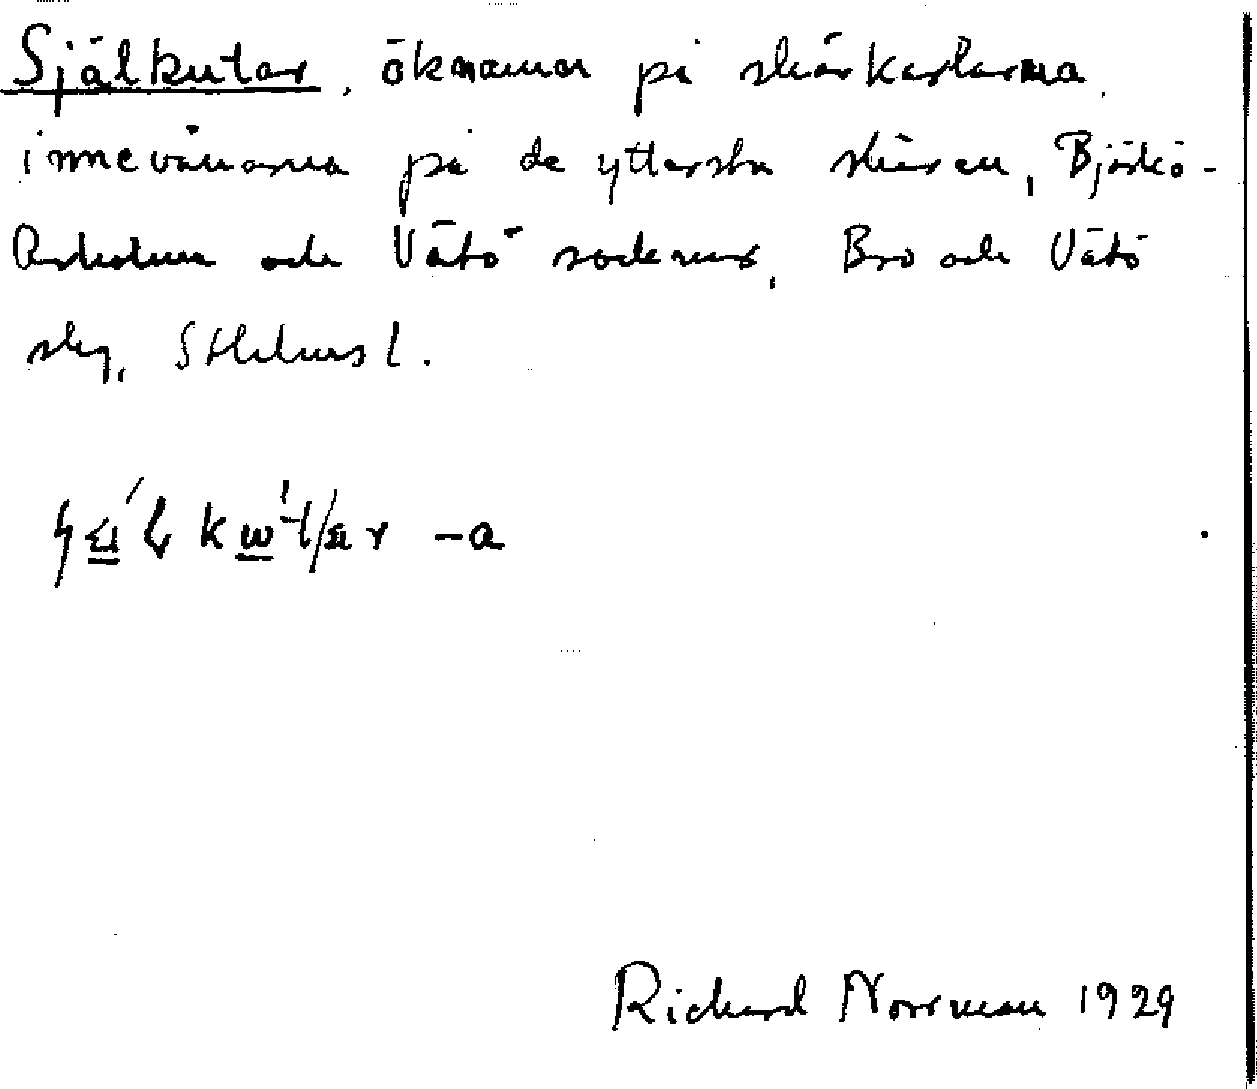 Själkutar, öknamn på skärkarlarna,
innevånarna på de yttersta skären, Björkö-
Arholma och Vätö socknar, Bro och Vätö
skg, Sthlms l.
Richard Norrman 1929